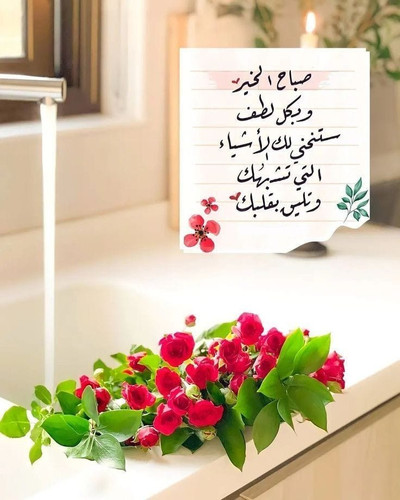 صباح الخير
وبكل لطف
ستنحني لك الأشياء
التي تشبهك
وتليق بقلبك